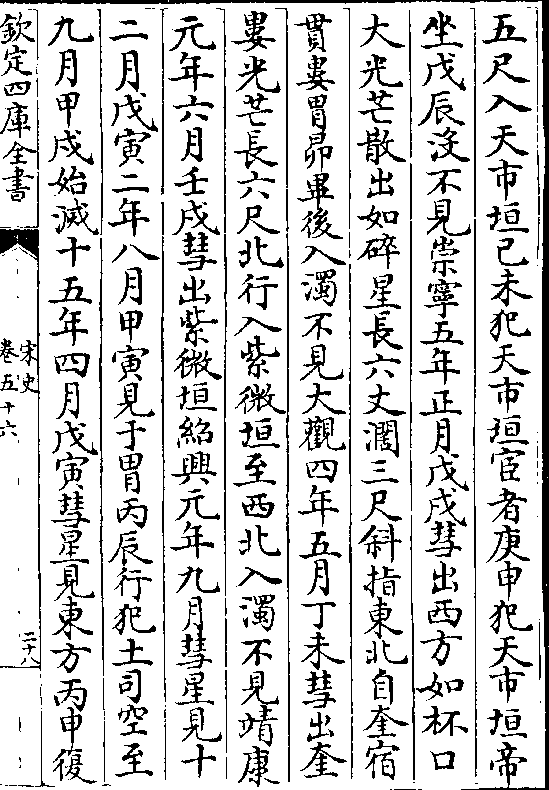 五尺入天市垣己未犯天市垣宦者庚申犯天市垣帝
坐戊辰没不見崇寧五年正月戊戌彗出西方如杯口
大光芒散出如碎星長六丈濶三尺斜指東北自奎宿
貫婁胃昴畢後入濁不見大觀四年五月丁未彗出奎
婁光芒長六尺北行入紫微垣至西北入濁不見靖康
元年六月壬戌彗出紫微垣紹興元年九月彗星見十
二月戊寅二年八月甲寅見于胃丙辰行犯土司空至
九月甲戌始滅十五年四月戊寅彗星見東方丙申復
欽定四庫全書
宋史
卷五十六
二十八